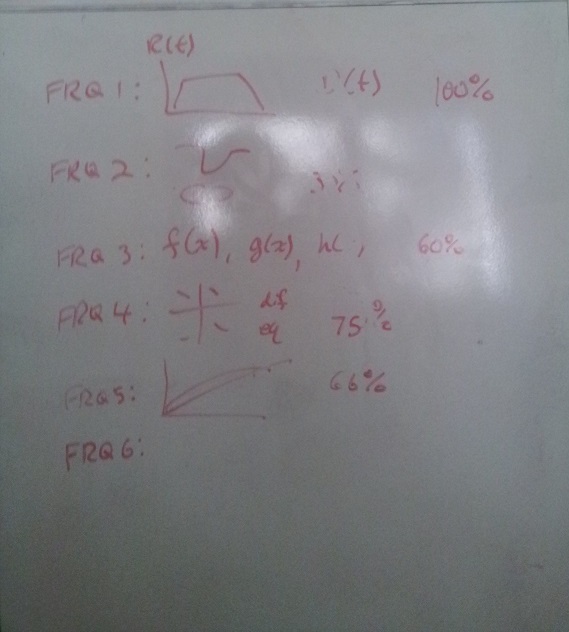 R(t)
FRQ 1: 100%
FRQ 2:
FRQ 3: f(x), g(x), 60%
FRQ 4: eq 75%
FRQ5: 66%
FRQ6: